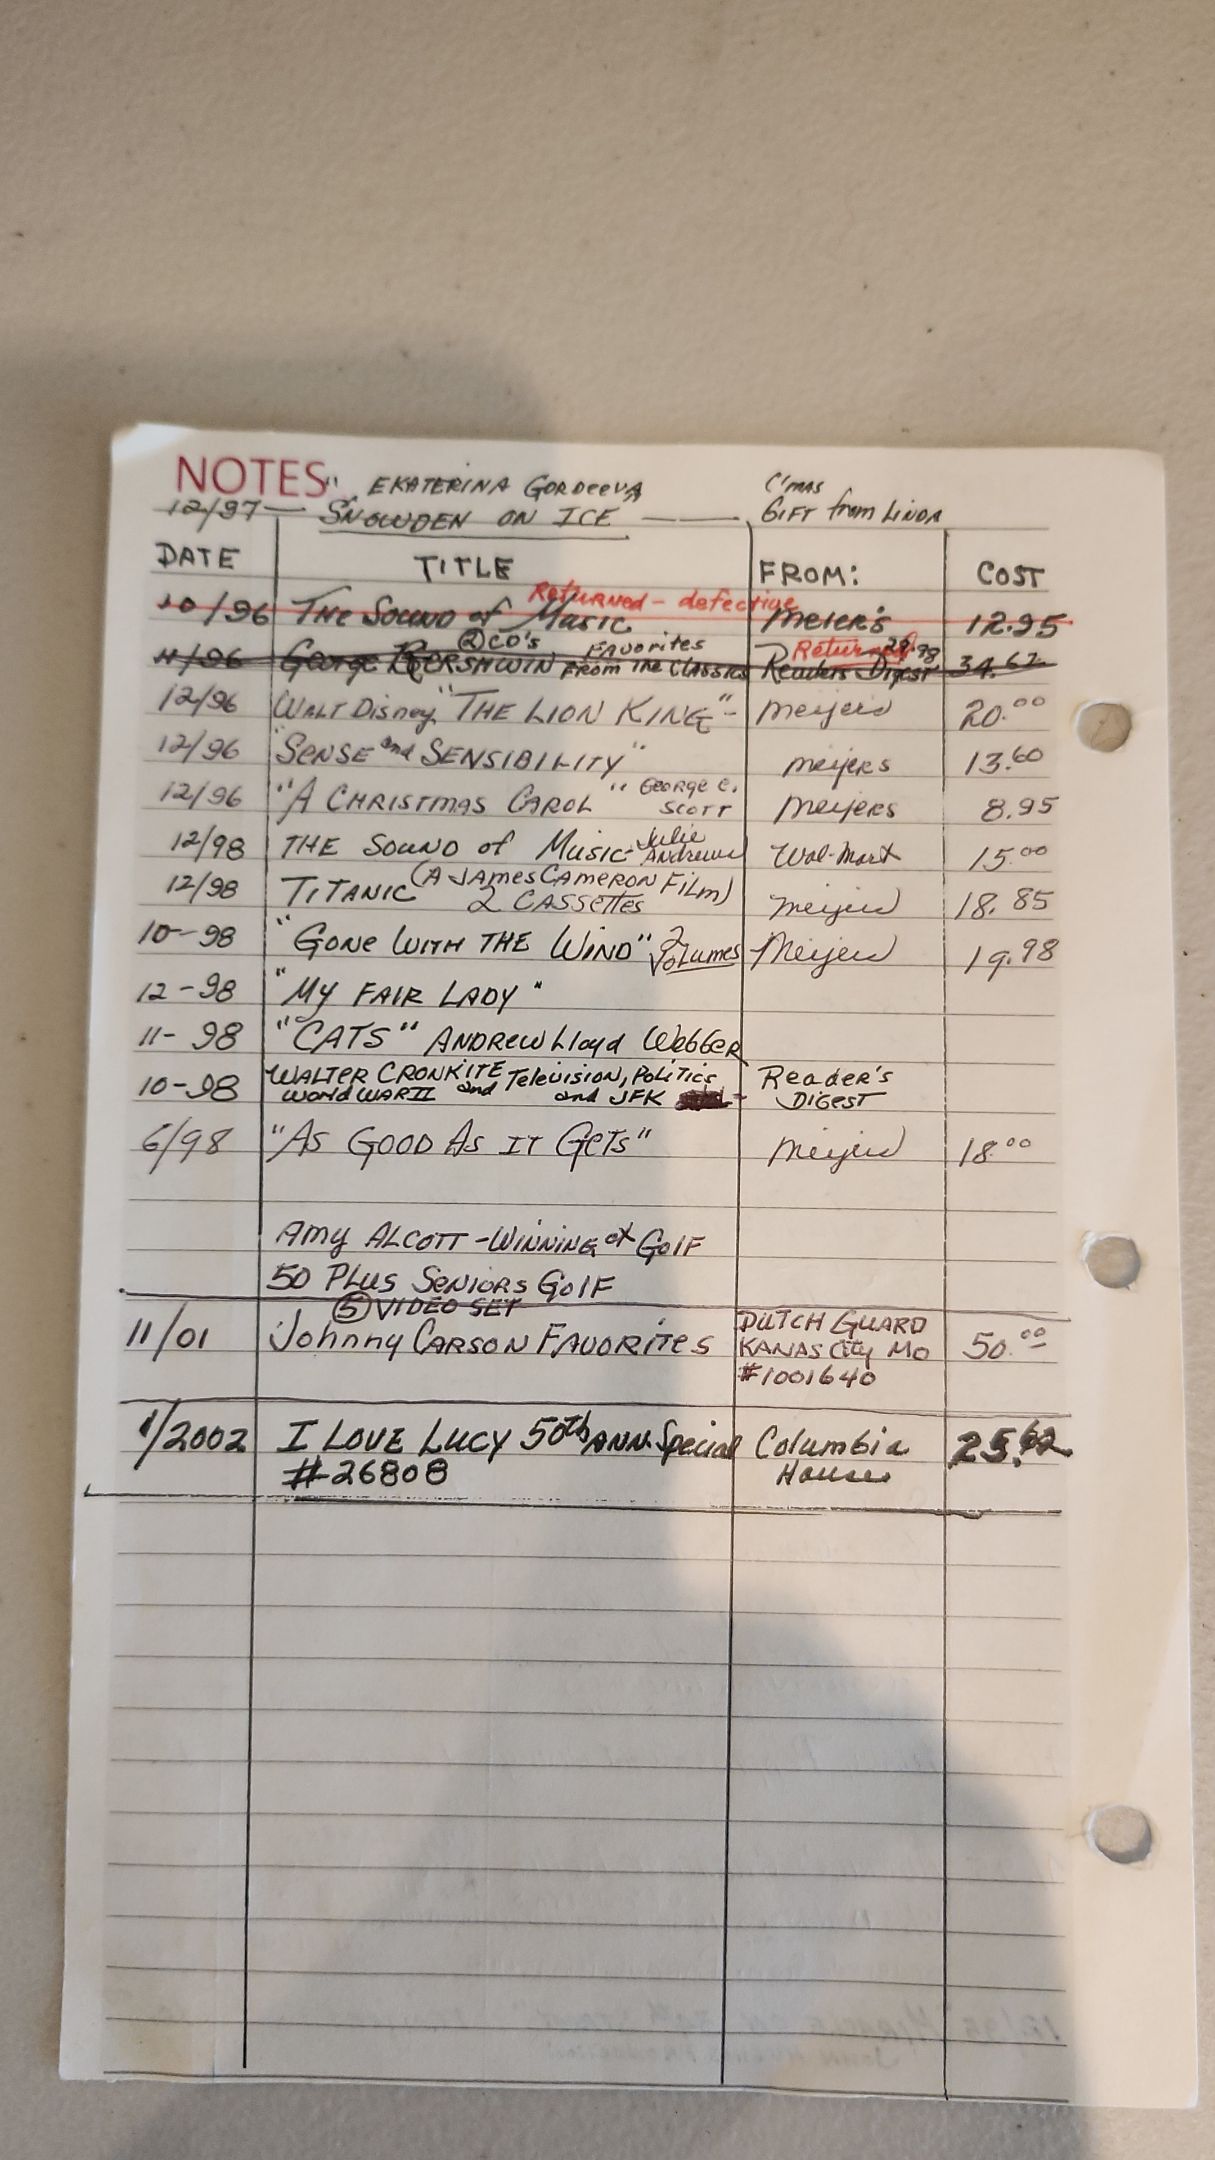 NOTES " EKATERINA GORDEEVA C'MAS
12/97 — SNOWDEN ON ICE — GIFT from LINDA
DATE TITLE FROM: COST
Returned - defective
10/96 THE SOUND of Music Meier's 12.95
② CD's Favorites Returned 29.98
11/96 George GERSHWIN FROM THE CLASSICS Readers Digest 34.62
12/96 WALT DISNEY "THE LION KING" - Meijers 20.00
12/96 "SENSE and SENSIBILITY" meijers 13.60
12/96 "A CHRISTMAS CAROL" GEORGE C. SCOTT Meijers 8.95
12/98 THE SOUND of Music - Julie Andrews Wal-Mart 15.00
12/98 TITANIC (A JAMES CAMERON FILM) 2 CASSETTES Meijers 18.85
10-98 "GONE WITH THE WIND" 2 Volumes Meijers 19.98
12-98 "MY FAIR LADY"
11-98 "CATS" ANDREW Lloyd Webber
10-98 WALTER CRONKITE and Television, Politics Reader's
World WAR II and JFK DIGEST
6/98 "AS GOOD AS IT GETS" Meijers 18.00
AMY ALCOTT - WINNING at GOLF
50 PLUS SENIORS GOLF
⑤ VIDEO SET DUTCH GUARD
11/01 Johnny CARSON FAVORITES KANAS City MO 50.00
#1001640
1/2002 I LOVE LUCY 50th ANN. Special Columbia
#26808 House